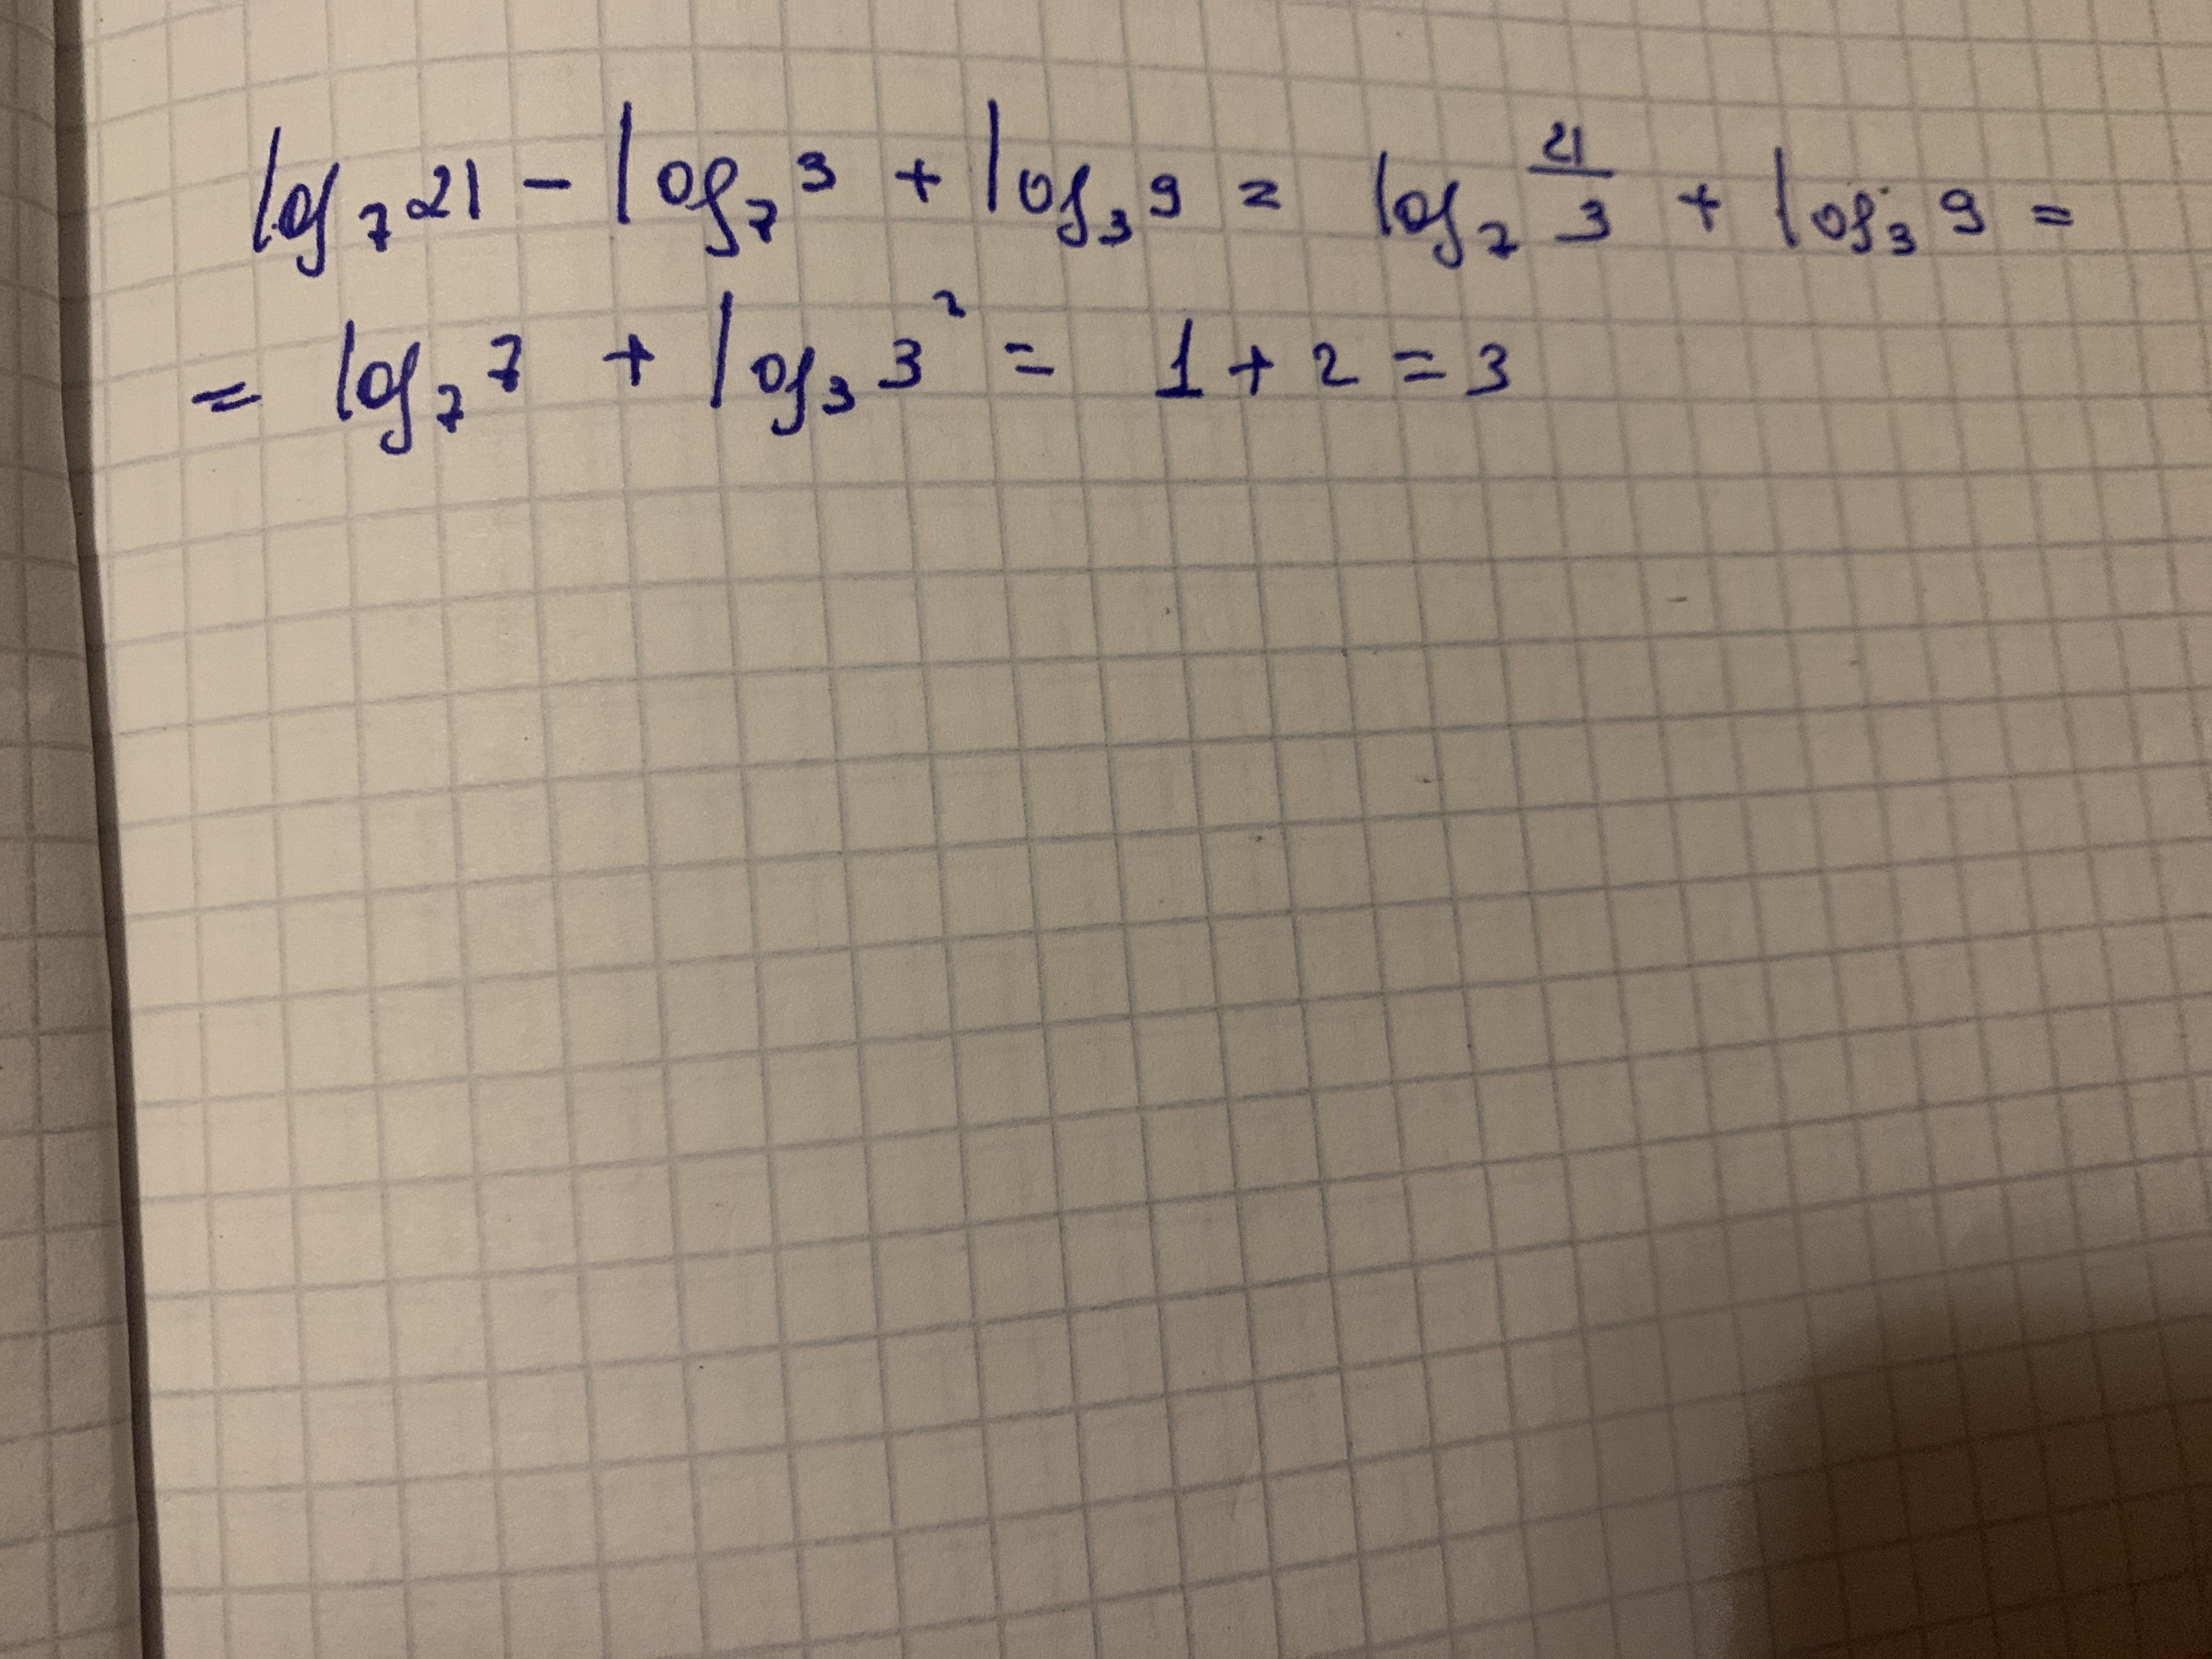 log₇ 21 − log₇ 3 + log₃ 9 = log₇ 21/3 + log₃ 9 =
= log₇ 7 + log₃ 3² = 1 + 2 = 3